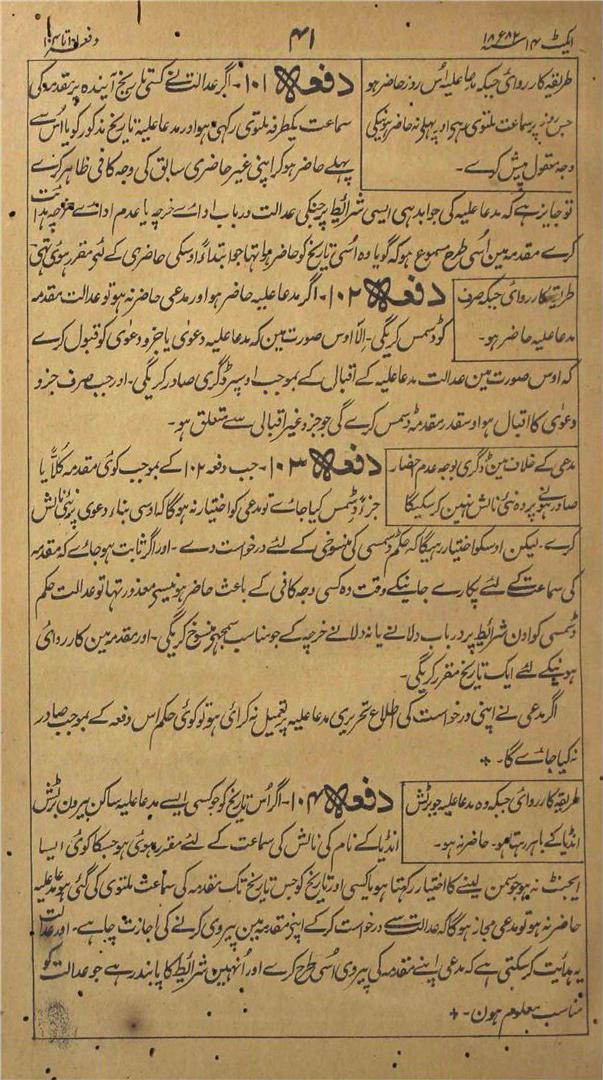 ایکٹ ۱۴ سنہ ۱۸۸۲ ۴۱ دفعہ ۱۰۱ تا ۱۰۴
طریقہ کارروائی جبکہ مدعا علیہ اُس روز حاضر ہو
جس روز پر سماعت ملتوی رہی اور پہلے نہ حاضر ہونیکی
وجہ معقول پیش کرے۔
دفعہ ۱۰۱۔ اگر عدالت نے کسی تاریخ آیندہ پر مقدمہ کی
سماعت یکطرفہ ملتوی رکھی ہو اور مدعا علیہ تاریخ مذکور کو یا اُس سے
پہلے حاضر ہو کر اپنی غیر حاضری سابق کی وجہ کافی ظاہر کرے
تو جایز ہے کہ مدعا علیہ کی جوابدہی ایسی شرائط پر جنکی عدالت درباب اداے خرچہ یا عدم اداے خرچہ ہدایت
کرے مقدمہ مین اُسی طرح مسموع ہو کہ گویا وہ اُسی تاریخ کو حاضر ہوا تہا جو ابتداءً اوسکی حاضری کے لئے مقرر ہوئی تہی
طریقہ کارروائی جبکہ صرف
مدعا علیہ حاضر ہو۔
دفعہ ۱۰۲۔ اگر مدعا علیہ حاضر ہو اور مدعی حاضر نہ ہو تو عدالت مقدمہ
کو ڈسمس کریگی۔ اِلّا اوس صورت مین کہ مدعا علیہ دعویٰ یا جزو دعویٰ کو قبول کرے
کہ اوس صورت مین عدالت مدعا علیہ کے اقبال کے بموجب اوسپر ڈگری صادر کریگی۔ اور جب صرف جزو
دعویٰ کا اقبال ہو اوسقدر مقدمہ ڈسمس کرے گی جو جزو غیر اقبالی سے متعلق ہو۔
مدعی کے خلاف مین ڈگری بوجہ عدم احضار
صادر ہونے پر وہ نئی نالش نہین کرسکیگا
دفعہ ۱۰۳۔ جب دفعہ ۱۰۲ کے بموجب کوئی مقدمہ کُلاًّ یا
جزءً ڈسمس کیا جاے تو مدعی کو اختیار نہ ہوگا کہ اوسی بناء دعوی پر نئی نالش
کرے۔ لیکن اوسکو اختیار رہیگا کہ حکم ڈسمسی کی منسوخی کے لئے درخواست دے۔ اور اگر ثابت ہو جاے کہ مقدمہ
کی سماعت کے لئے پکارے جانیکے وقت وہ کسی وجہ کافی کے باعث حاضر ہونیسے معذور تہا تو عدالت حکم
ڈسمسی کو اون شرائط پر درباب دلانے یا نہ دلانے خرچہ کے جو مناسب سمجہے منسوخ کریگی۔ اور مقدمہ مین کارروائی
ہونیکے لئے ایک تاریخ مقرر کریگی۔
اگر مدعی نے اپنی درخواست کی اطلاع تحریری مدعا علیہ پر تعمیل نہ کرائی ہو تو کوئی حکم اس دفعہ کے بموجب صادر
نہ کیا جاے گا۔
طریقہ کارروائی جبکہ وہ مدعا علیہ جو برٹش
انڈیا کے باہر رہتا ہو۔ حاضر نہ ہو۔
دفعہ ۱۰۴۔ اگر اُس تاریخ کو جو کسی ایسے مدعا علیہ ساکن بیرون برٹش
انڈیا کے نام کی نالش کی سماعت کے لئے مقرر ہوئی ہو جسکا کوئی ایسا
ایجنٹ نہ ہو جو سمن لینے کا اختیار رکہتا ہو یا کسی اور تاریخ کو جس تاریخ تک مقدمہ کی سماعت ملتوی کی گئی ہو مدعا علیہ
حاضر نہ ہو تو مدعی مجاز ہوگا کہ عدالت سے درخواست کرکے اپنے مقدمہ مین پیروی کرنے کی اجازت چاہے۔ اور عدالت
یہ ہدائیت کرسکتی ہے کہ مدعی اپنے مقدمہ کی پیروی اُسی طرح کرے اور اُنہین شرائط کا پابند رہے جو عدالت کو
مناسب معلوم ہون۔